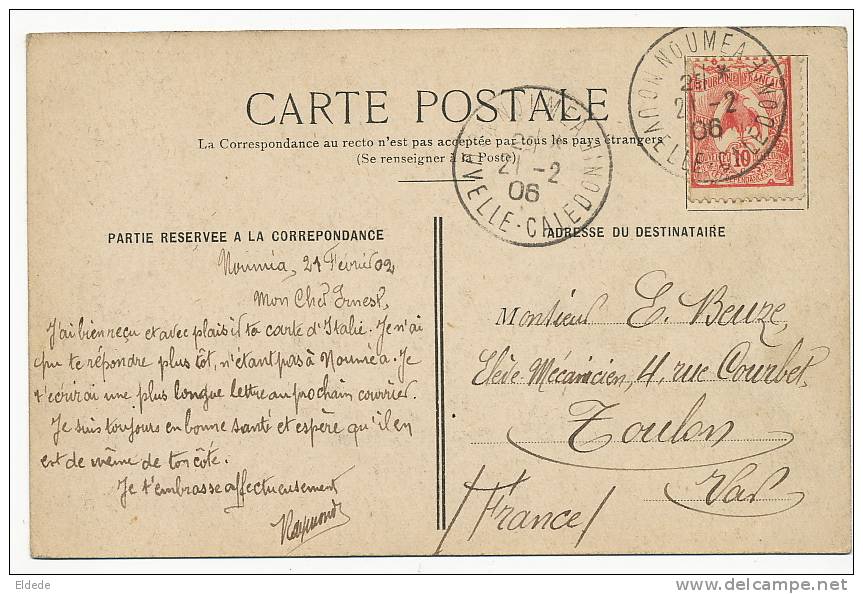 CARTE POSTALE
La Correspondance au recto n'est pas acceptée par tous les pays étrangers
(Se renseigner à la Poste)
NOUMEA
NOUVELLE-CALEDONIE
21 -2
06
NOUMEA
NOUVELLE-CALEDONIE
21 -2
06
REPUBLIQUE FRANÇAISE
10
PARTIE RESERVEE A LA CORREPONDANCE
Nouméa, 21 Février 02
Mon Cher Ernest,
J'ai bien reçu et avec plaisir ta carte d'Italie. Je n'ai
pu te répondre plus tôt, n'étant pas à Nouméa. Je
t'écrirai une plus longue lettre au prochain courrier.
Je suis toujours en bonne santé et espère qu'il en
est de même de ton côté.
Je t'embrasse affectueusement
Raymond
ADRESSE DU DESTINATAIRE
Monsieur E. Beuze,
Elève Mécanicien, 4, rue Courbet,
Toulon
Var
/France/
Eldede
delcampe.net